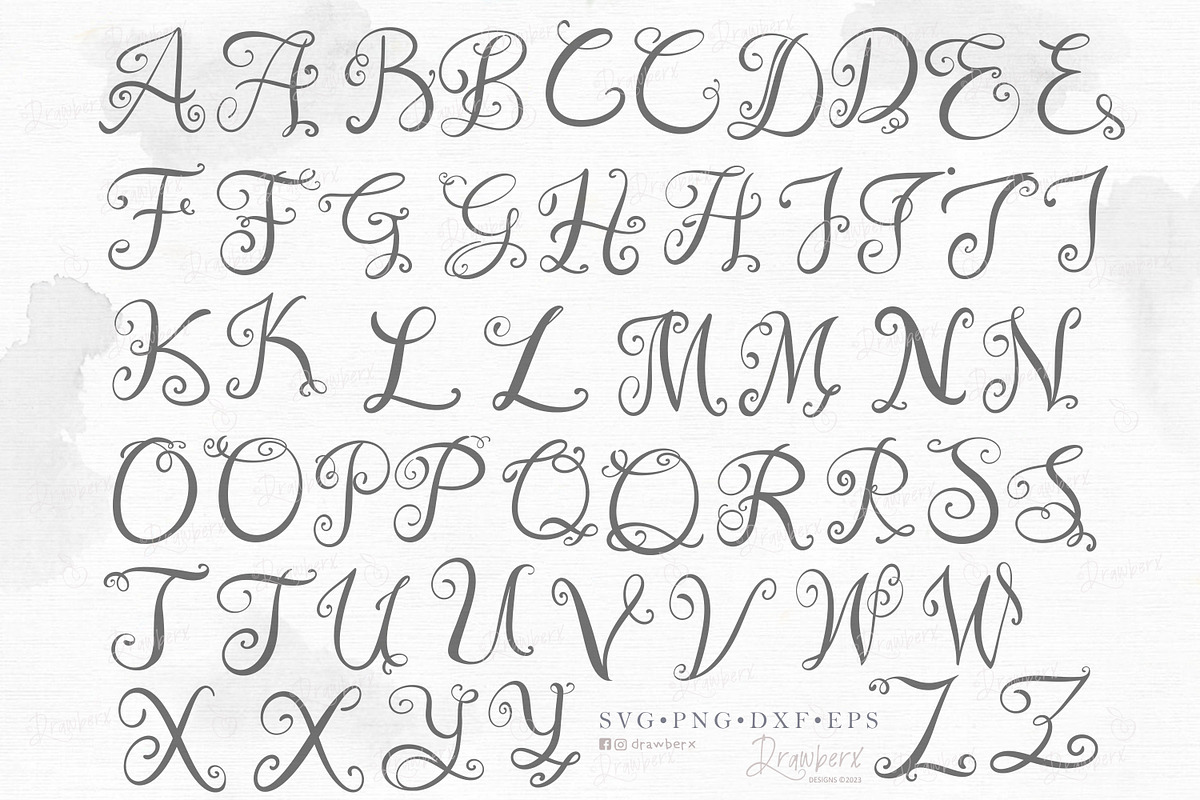 A A B B C C D D E E
F F G G H H I I J J
K K L L M M N N
O O P P Q Q R R S S
T T U U V V W W
X X Y Y Z Z
SVG•PNG•DXF•EPS
drawberx
Drawberx
DESIGNS ©2023